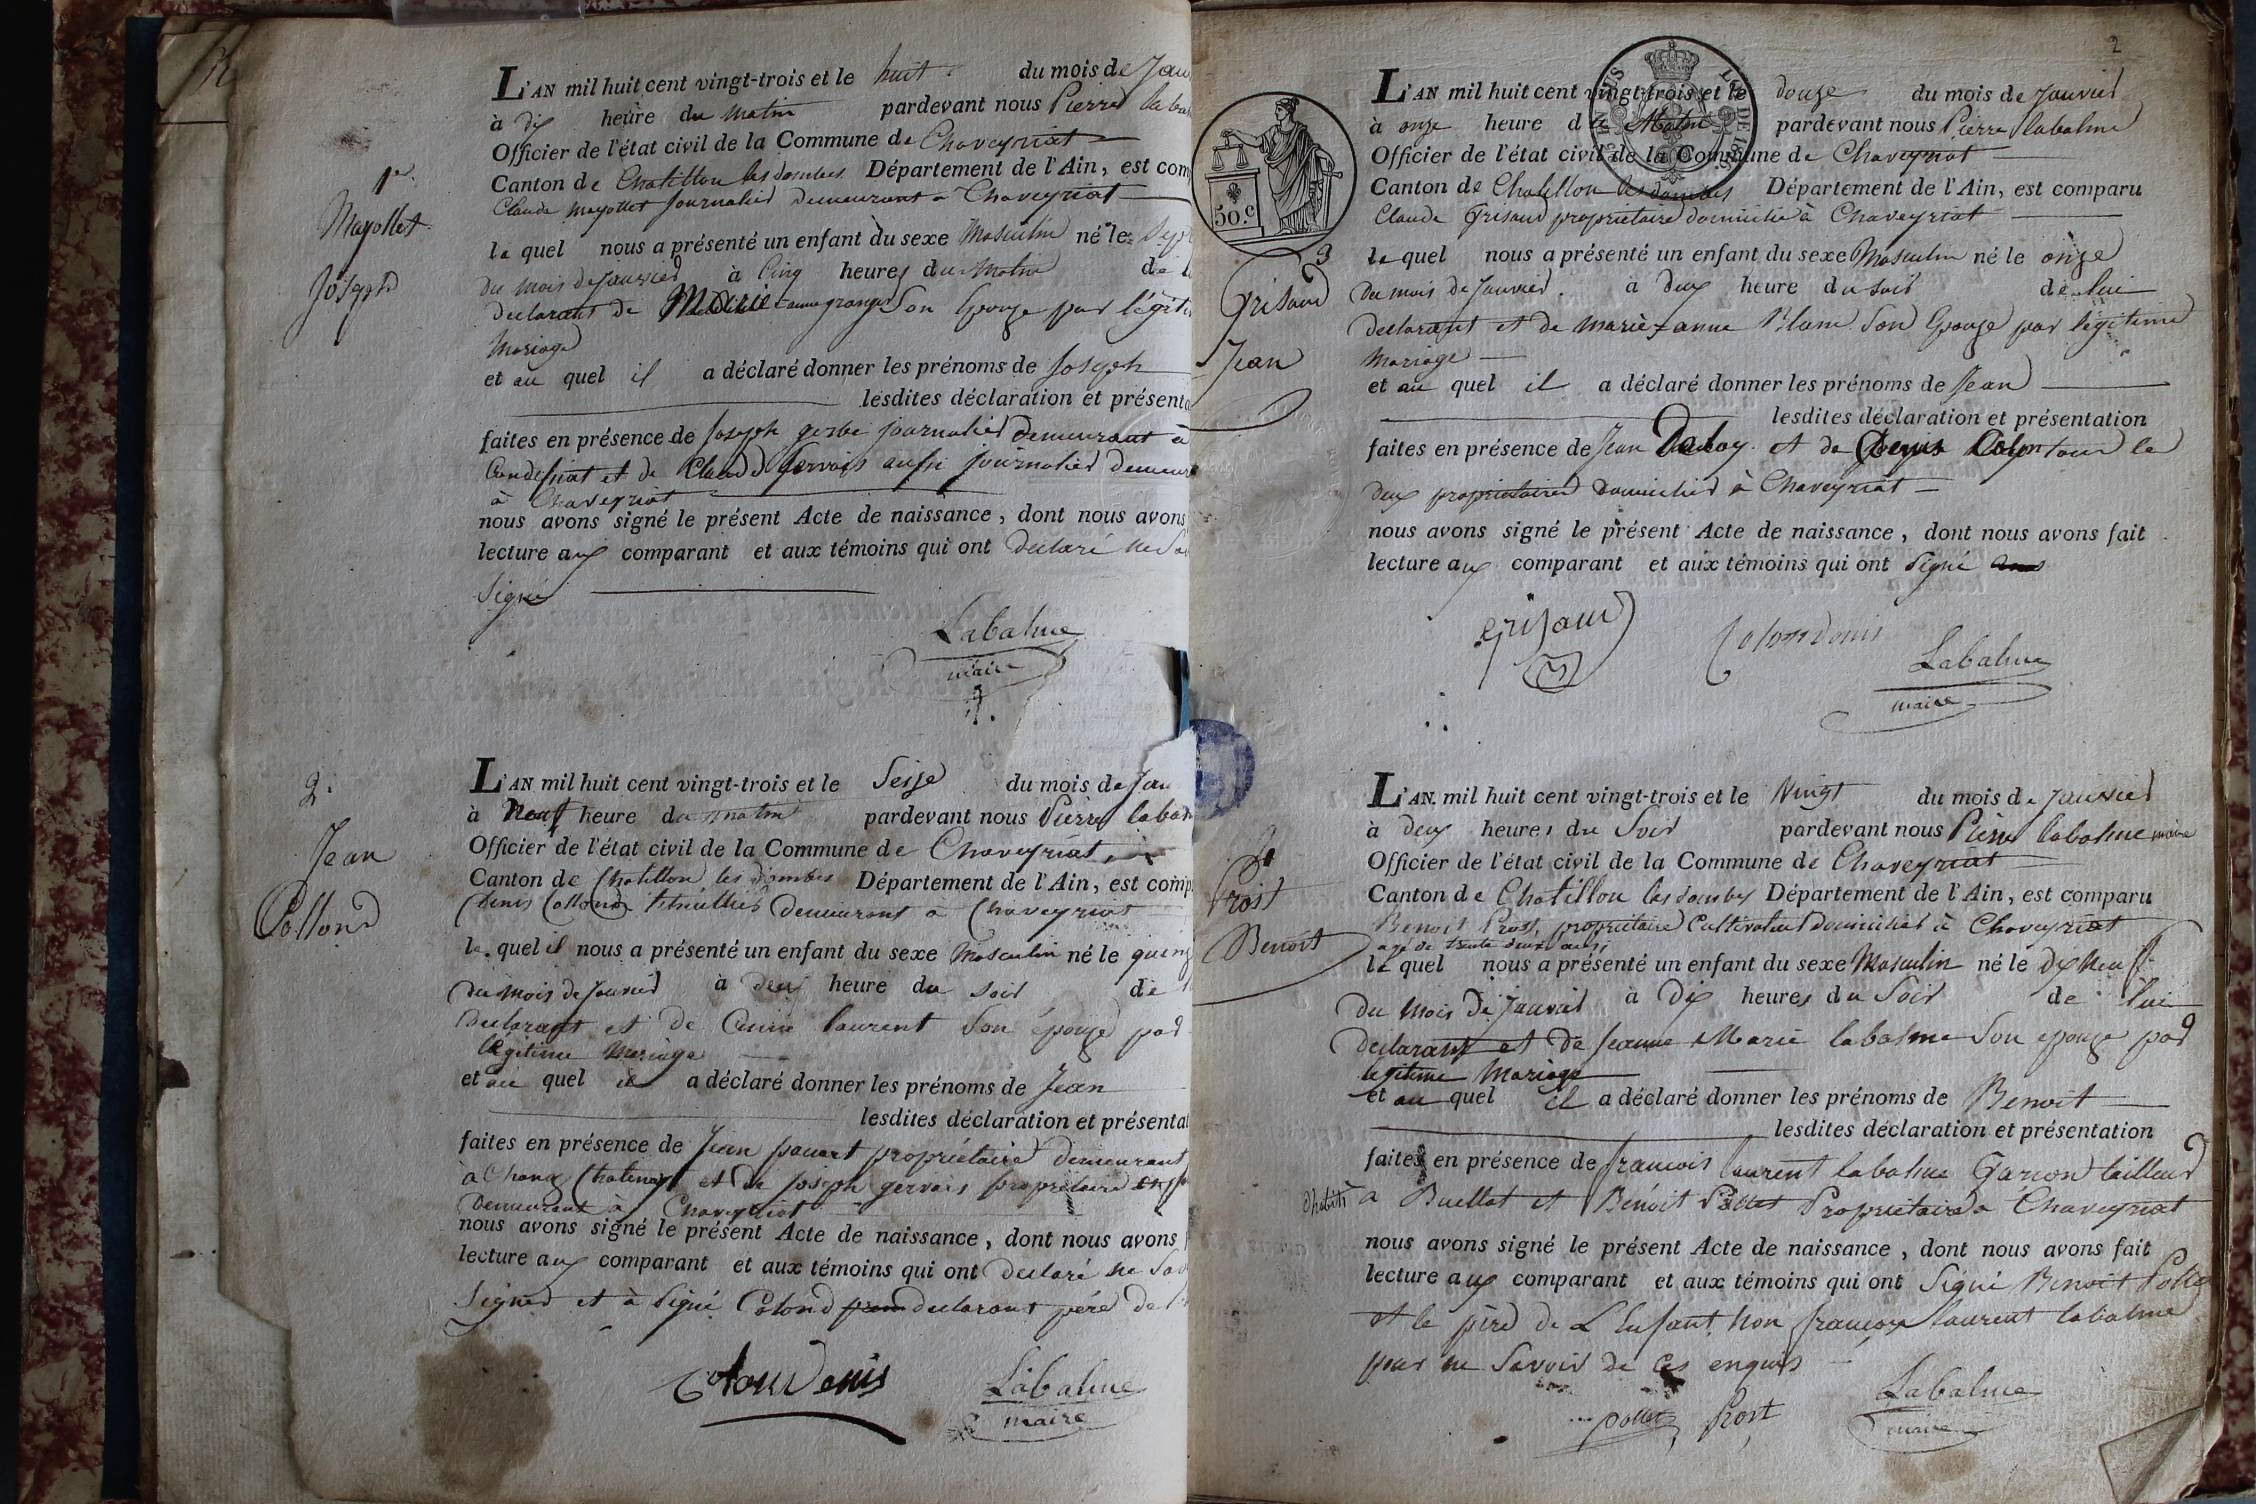 1er.
Mayollet
Joseph
L'AN mil huit cent vingt-trois et le huit du mois de Jan
à dix heure du matin pardevant nous Pierre laba
Officier de l'état civil de la Commune de Chaveyriat
Canton de Chatillon les dombes Département de l'Ain, est com
Claude mayollet journalier demeurant a Chaveyriat
le quel nous a présenté un enfant du sexe Masculin né le Sept
du mois de janvier à Cinq heures du matin de l
declarant de Marie anne granger Son Epouze par légiti
Mariage
et au quel il a déclaré donner les prénoms de Joseph
lesdites déclaration et présenta
faites en présence de Joseph gerbe journalier demeurant à
Condessiat et de Claude Gervais aussi journalier demeur
à Chaveyriat
nous avons signé le présent Acte de naissance, dont nous avons
lecture aux comparant et aux témoins qui ont declaré ne Sa
Signé
Labalme
maire
2.
Jean
Collond
L'AN mil huit cent vingt-trois et le Seize du mois de Jan
à Neuf heure du matin pardevant nous Pierre laba
Officier de l'état civil de la Commune de Chaveyriat,
Canton de Chatillon les dombes Département de l'Ain, est comp
Denis Collond demeurant à Chaveyriat
le quel il nous a présenté un enfant du sexe Masculin né le quinz
du mois de Janvier à deux heure du soir de l
Declarant et de laurent Son épouze par
légitime Mariage
et au quel il a déclaré donner les prénoms de Jean
lesdites déclaration et présentat
faites en présence de Jean pauart propriétaire demeurant
à Chanoz Chatenay et de joseph gervais propriétaire
Demeurant à Chaveyriat
nous avons signé le présent Acte de naissance, dont nous avons f
lecture aux comparant et aux témoins qui ont declaré ne Sav
Signer et à Signé Colond declarant père de l
Colon Denis
Labalme
maire
2
50.c
3
Grisaud
Jean
L'AN mil huit cent vingt-trois et le douze du mois de Janvier
à onze heure du Matin pardevant nous Pierre labalme
Officier de l'état civil de la Commune de Chaveyriat
Canton de Chatillon les dombes Département de l'Ain, est comparu
Claude Grisaud propriétaire domicilié à Chaveyriat
le quel nous a présenté un enfant du sexe Masculin né le onze
Du mois de Janvier. à deux heure du soir de lui
declarant et de marie-anne Blanc Son Epouze par légitime
Mariage
et au quel il a déclaré donner les prénoms de Jean
lesdites déclaration et présentation
faites en présence de Jean Duboy et de Denis Colon tous le
deux propriétaires domiciliés à Chaveyriat
nous avons signé le présent Acte de naissance, dont nous avons fait
lecture aux comparant et aux témoins qui ont Signé
Grisaud
Colon Denis
Labalme
maire
Prost
Benoit
L'AN mil huit cent vingt-trois et le Vingt du mois de Janvier
à deux heures du Soir pardevant nous Pierre labalme maire
Officier de l'état civil de la Commune de Chaveyriat
Canton de Chatillon les dombes Département de l'Ain, est comparu
Benoit Prost, propriétaire Cultivateur domicilié à Chaveyriat
agé de trente deux ans;
le quel nous a présenté un enfant du sexe Masculin né le dix Neuf
du Mois de Janvier à dix heures du Soir de lui
declarant et de Jeanne Marie labalme Son epouze par
legitime Mariage
et au quel il a déclaré donner les prénoms de Benoit
lesdites déclaration et présentation
faites en présence de francois laurent labalme Garcon tailleur
d'habits à Buellat et Bénoit Pollet Propriétaire a Chaveyriat
nous avons signé le présent Acte de naissance, dont nous avons fait
lecture aux comparant et aux témoins qui ont Signé Benoit Pollet
et le père de L'Enfant, Non françois laurent labalme
pour ne Savoir de ces enquis
pollet
Prost
Labalme
maire